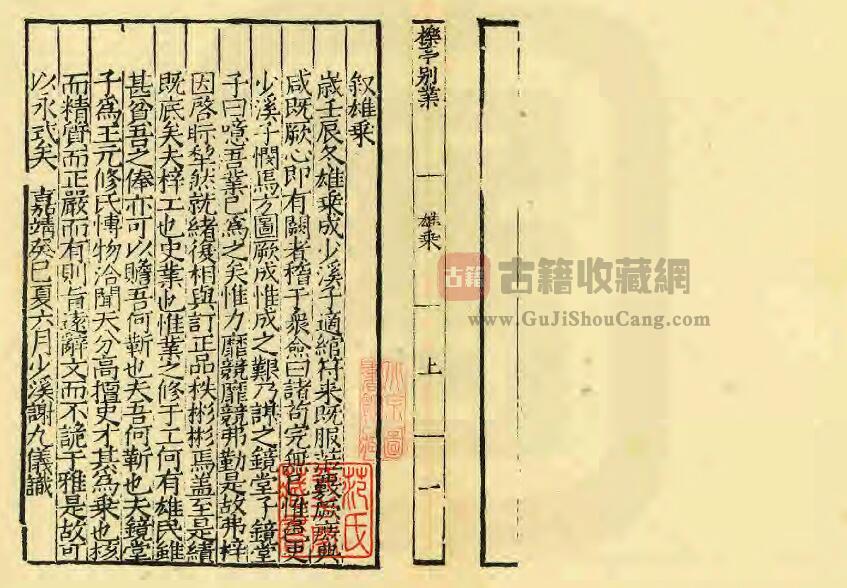 叙雄乗
歳壬辰冬雄乗成少溪子適綰符来既服
咸既厥心即有闕者稽于衆僉曰諸苟完無
少溪子憫焉方圖厥成惟成之艱乃謀之鏡堂子鏡堂
子曰噫吾業已爲之矣惟力靡競靡競弗勤是故弗梓
因啓眎犂然就緒復相與訂正品秩彬彬焉盖至是績
既底矣夫梓工也史業也惟業之修于工何有雄民雖
甚貧吾之俸亦可以贍吾何靳也夫吾何靳也夫鏡堂
子爲王元修氏愽物洽聞天分高擅史才其為乗也核
而精質而正嚴而有則旨逺辭文而不詭于雅是故可
以永式矣 嘉靖癸巳夏六月少溪謝九儀識
櫟亭别業
雄乗
上
一
范氏
古籍
古籍收藏網
www.GuJiShouCang.com